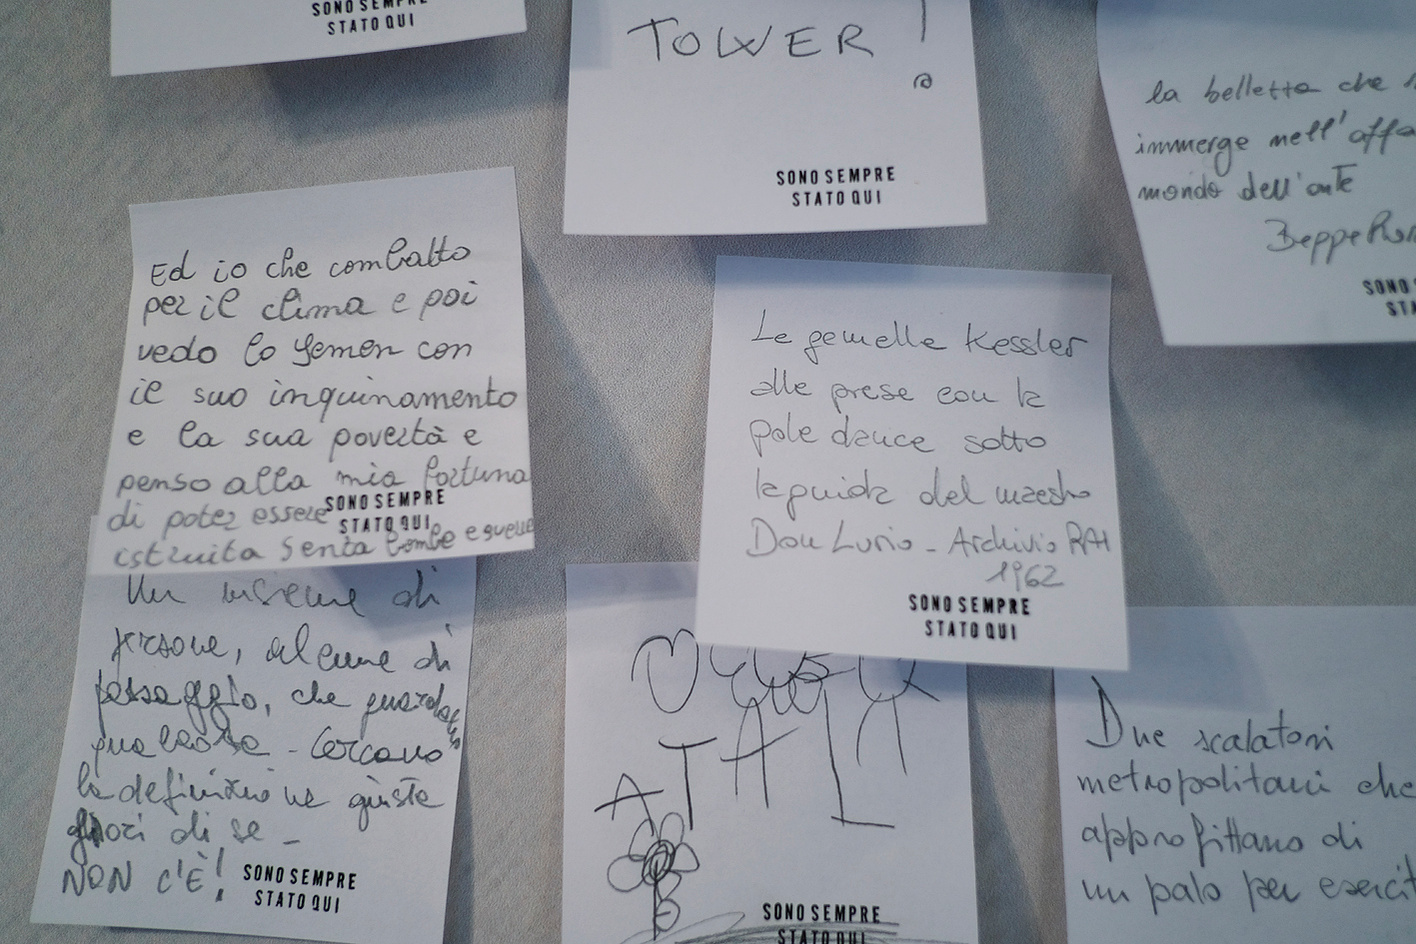 SONO SEMPRE
STATO QUI
TOWER!
SONO SEMPRE
STATO QUI
la belletta che
immerge nell'
mondo dell'arte
Beppe
SONO
STA
Ed io che combatto
per il clima e poi
vedo lo Yemen con
il suo inquinamento
e la sua povertà e
penso alla mia fortuna
di poter essere
istruita senta bombe e guerre
SONO SEMPRE
STATO QUI
Le gemelle Kessler
alle prese con la
pole dance sotto
la guida del maestro
Don Lurio - Archivio RAI
1962
SONO SEMPRE
STATO QUI
Un insieme di
persone, alcune di
passaggio, che guardano
qualcosa - Cercano
la definizione giusta
fuori di se -
NON C'È!
SONO SEMPRE
STATO QUI
ATAL
SONO SEMPRE
STATO QUI
Due scalatori
metropolitani che
approfittano di
un palo per esercit